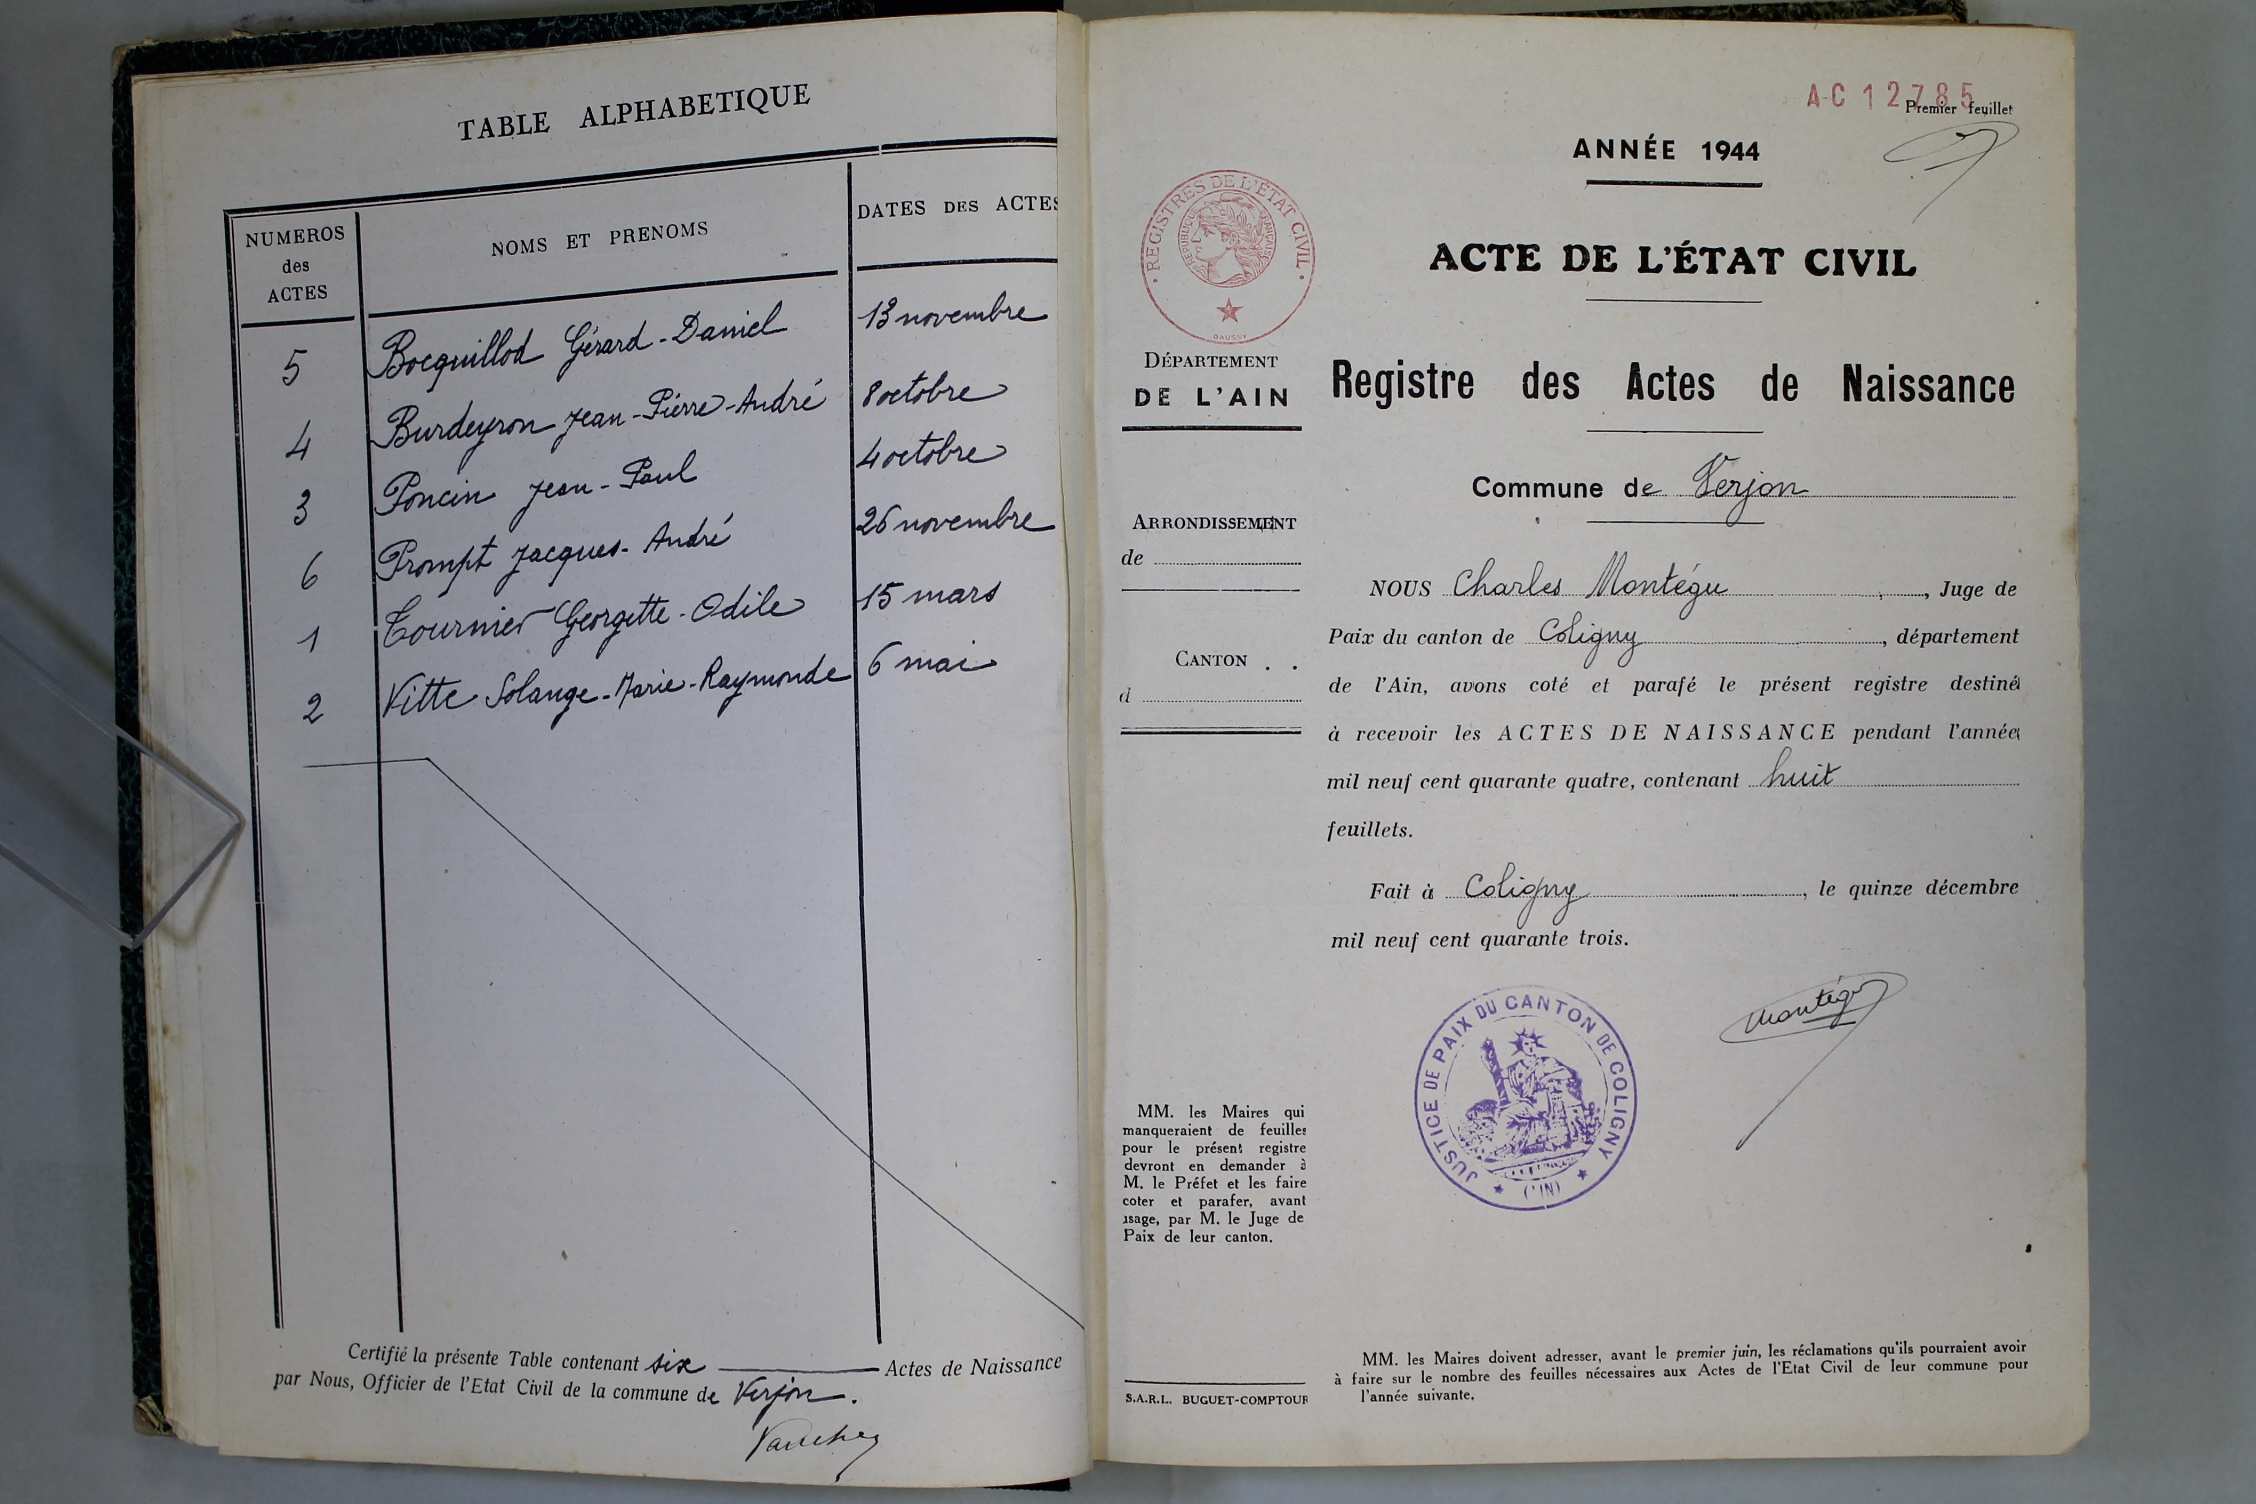 TABLE ALPHABETIQUE
NUMEROS
des
ACTES
NOMS ET PRENOMS
DATES DES ACTES
5 Bocquillod Gérard-Daniel 13 novembre
4 Burdeyron Jean-Pierre-André 8 octobre
3 Poncin Jean-Paul 4 octobre
6 Prompt Jacques-André 26 novembre
1 Tournier Georgette-Odile 15 mars
2 Vitte Solange-Marie-Raymonde 6 mai
Certifié la présente Table contenant six Actes de Naissance
par Nous, Officier de l'Etat Civil de la commune de Verjon.
AC 12785
Premier feuillet
ANNÉE 1944
REGISTRES DE L'ÉTAT CIVIL
RÉPUBLIQUE FRANÇAISE
DAUSSY
ACTE DE L'ÉTAT CIVIL
DÉPARTEMENT
DE L'AIN
Registre des Actes de Naissance
Commune de Verjon
ARRONDISSEMENT
de
CANTON . .
d
NOUS Charles Montégu, Juge de
Paix du canton de Coligny, département
de l'Ain, avons coté et parafé le présent registre destiné
à recevoir les ACTES DE NAISSANCE pendant l'année
mil neuf cent quarante quatre, contenant huit
feuillets.
Fait à Coligny, le quinze décembre
mil neuf cent quarante trois.
Montégu
JUSTICE DE PAIX DU CANTON DE COLIGNY
MM. les Maires qui
manqueraient de feuilles
pour le présent registre
devront en demander à
M. le Préfet et les faire
coter et parafer, avant
usage, par M. le Juge de
Paix de leur canton.
S.A.R.L. BUGUET-COMPTOUR
MM. les Maires doivent adresser, avant le premier juin, les réclamations qu'ils pourraient avoir
à faire sur le nombre des feuilles nécessaires aux Actes de l'Etat Civil de leur commune pour
l'année suivante.